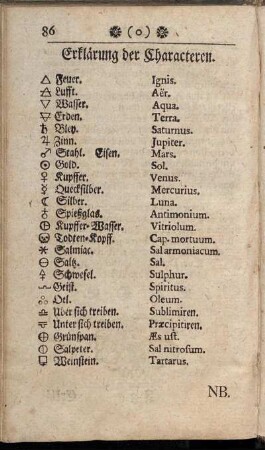 86 ❁ (o) ❁
Erklärung der Characteren.
🜂 Feuer. Ignis.
🜁 Lufft. Aër.
🜄 Wasser. Aqua.
🜃 Erden. Terra.
♄ Bley. Saturnus.
♃ Zinn. Jupiter.
♂ Stahl. Eisen. Mars.
☉ Gold. Sol.
♀ Kupffer. Venus.
☿ Quecksilber. Mercurius.
☾ Silber. Luna.
♁ Spießglas. Antimonium.
Kupffer-Wasser. Vitriolum.
Todten-Kopff. Cap. mortuum.
Salmiac. Sal armoniacum.
Saltz. Sal.
Schwefel. Sulphur.
Geist. Spiritus.
Oel. Oleum.
Uber sich treiben. Sublimiren.
Unter sich treiben. Præcipitiren.
Grünspan. Æs ust.
Salpeter. Sal nitrosum.
Weinstein. Tartarus.
NB.